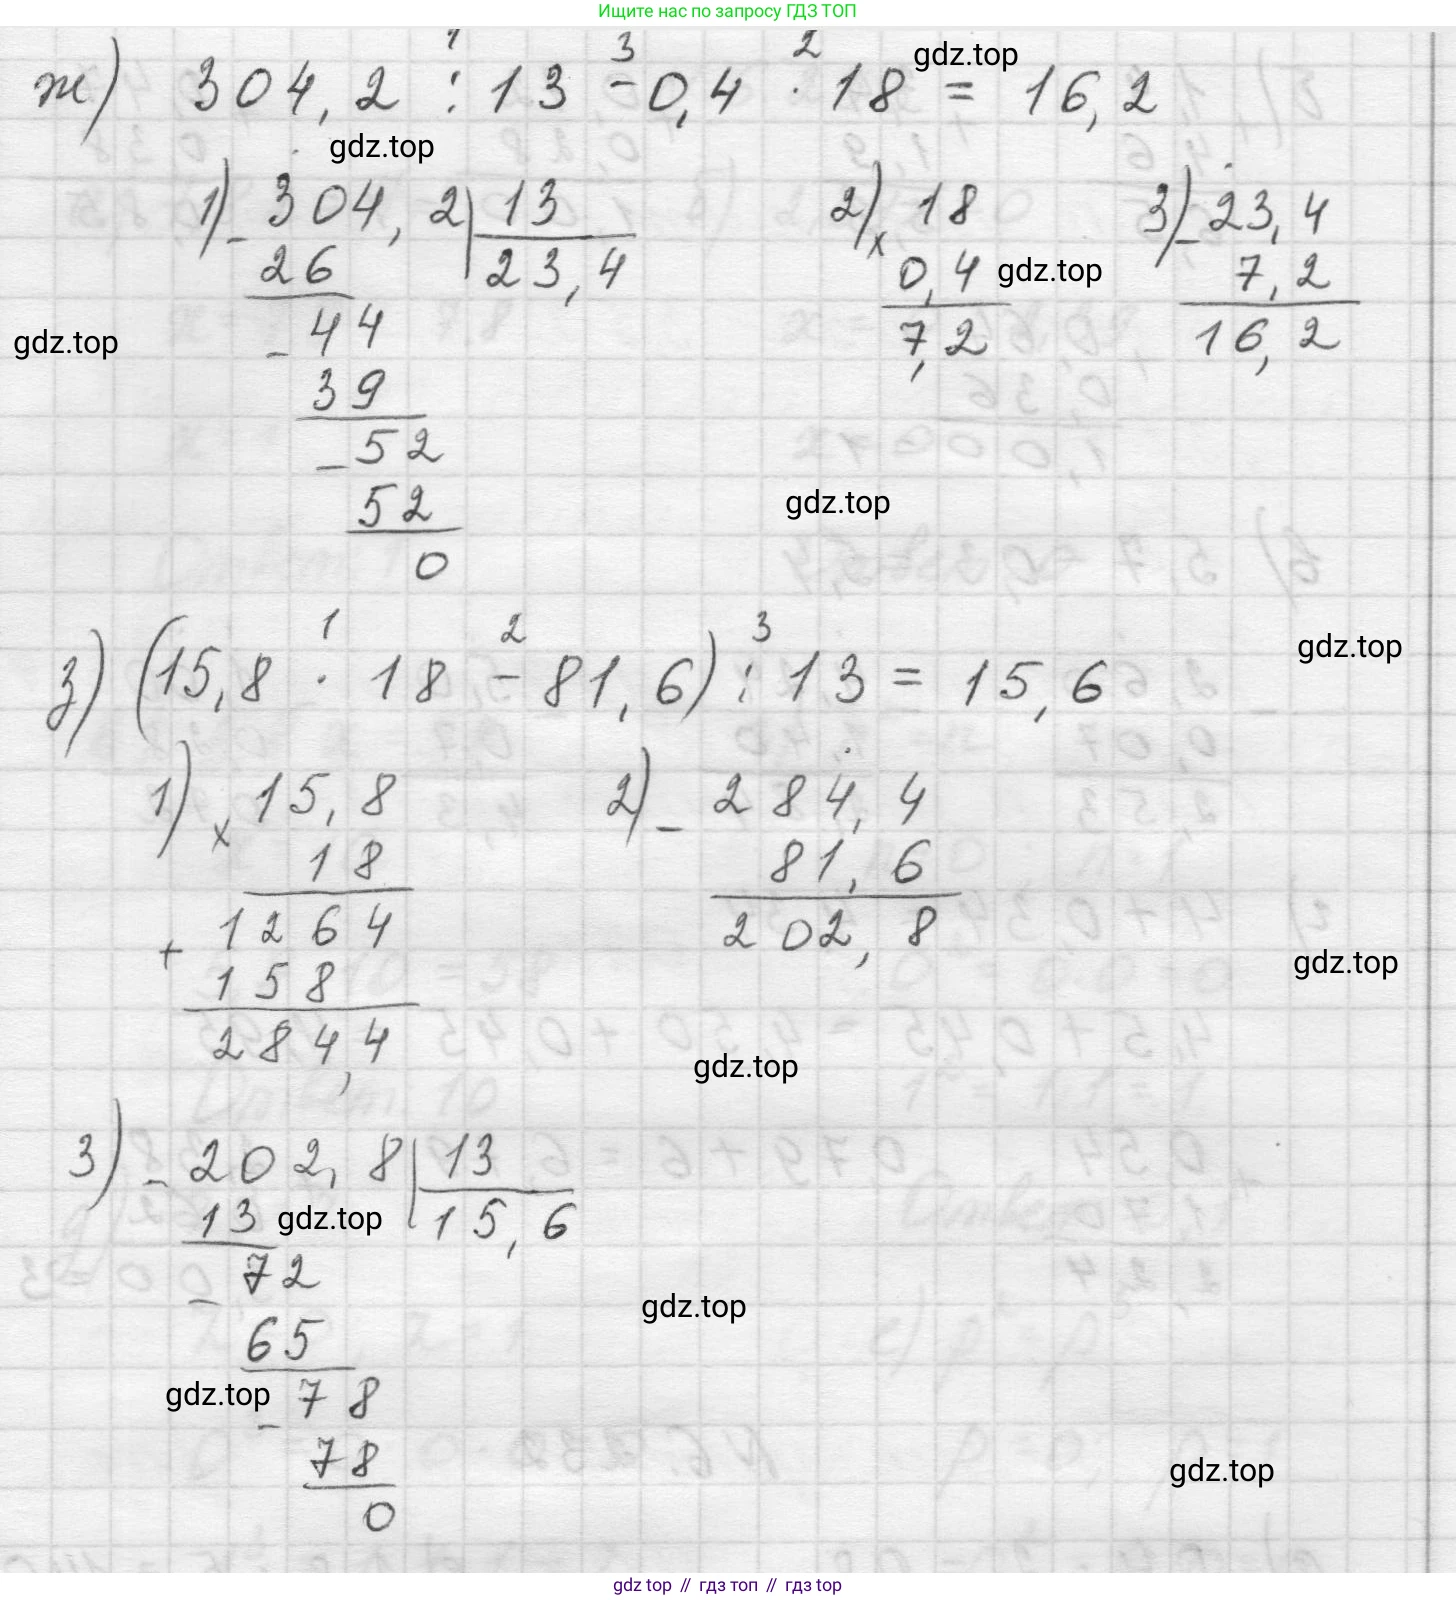 Ищите нас по запросу ГДЗ ТОП
1 3 2
ж) 304,2 : 13 - 0,4 · 18 = 16,2
gdz.top
gdz.top
1) - 304,2 | 13
26 23,4
- 44
39
- 52
52
0
2) x 18
0,4
7,2
gdz.top
3) - 23,4
7,2
16,2
gdz.top
gdz.top
gdz.top
1 2 3
з) (15,8 · 18 - 81,6) : 13 = 15,6
1) x 15,8
18
+ 1264
158
284,4
2) - 284,4
81,6
202,8
gdz.top
gdz.top
3) - 202,8 | 13
13 15,6
gdz.top
- 72
65
- 78
78
0
gdz.top
gdz.top
gdz.top
gdz top // гдз топ // gdz top